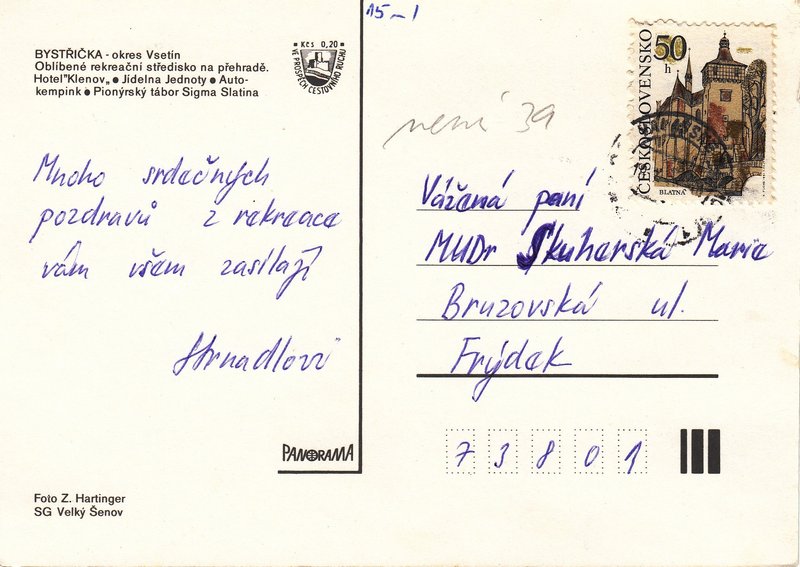 15-1
BYSTŘIČKA - okres Vsetín
Oblíbené rekreační středisko na přehradě.
Hotel"Klenov„ ● Jídelna Jednoty ● Auto-
kempink ● Pionýrský tábor Sigma Slatina
● Kčs 0,20 ●
VE PROSPĚCH CESTOVNÍHO RUCHU
50
h
ČESKOSLOVENSKO
BLATNÁ
není 39
Mnoho srdečných
pozdravů z rekreace
vám všem zasílají
Hrnadlovi
Vážená paní
MUDr Skuherská Marie
Bruzovská ul.
Frýdek
7 3 8 0 1
PANORAMA
Foto Z. Hartinger
SG Velký Šenov